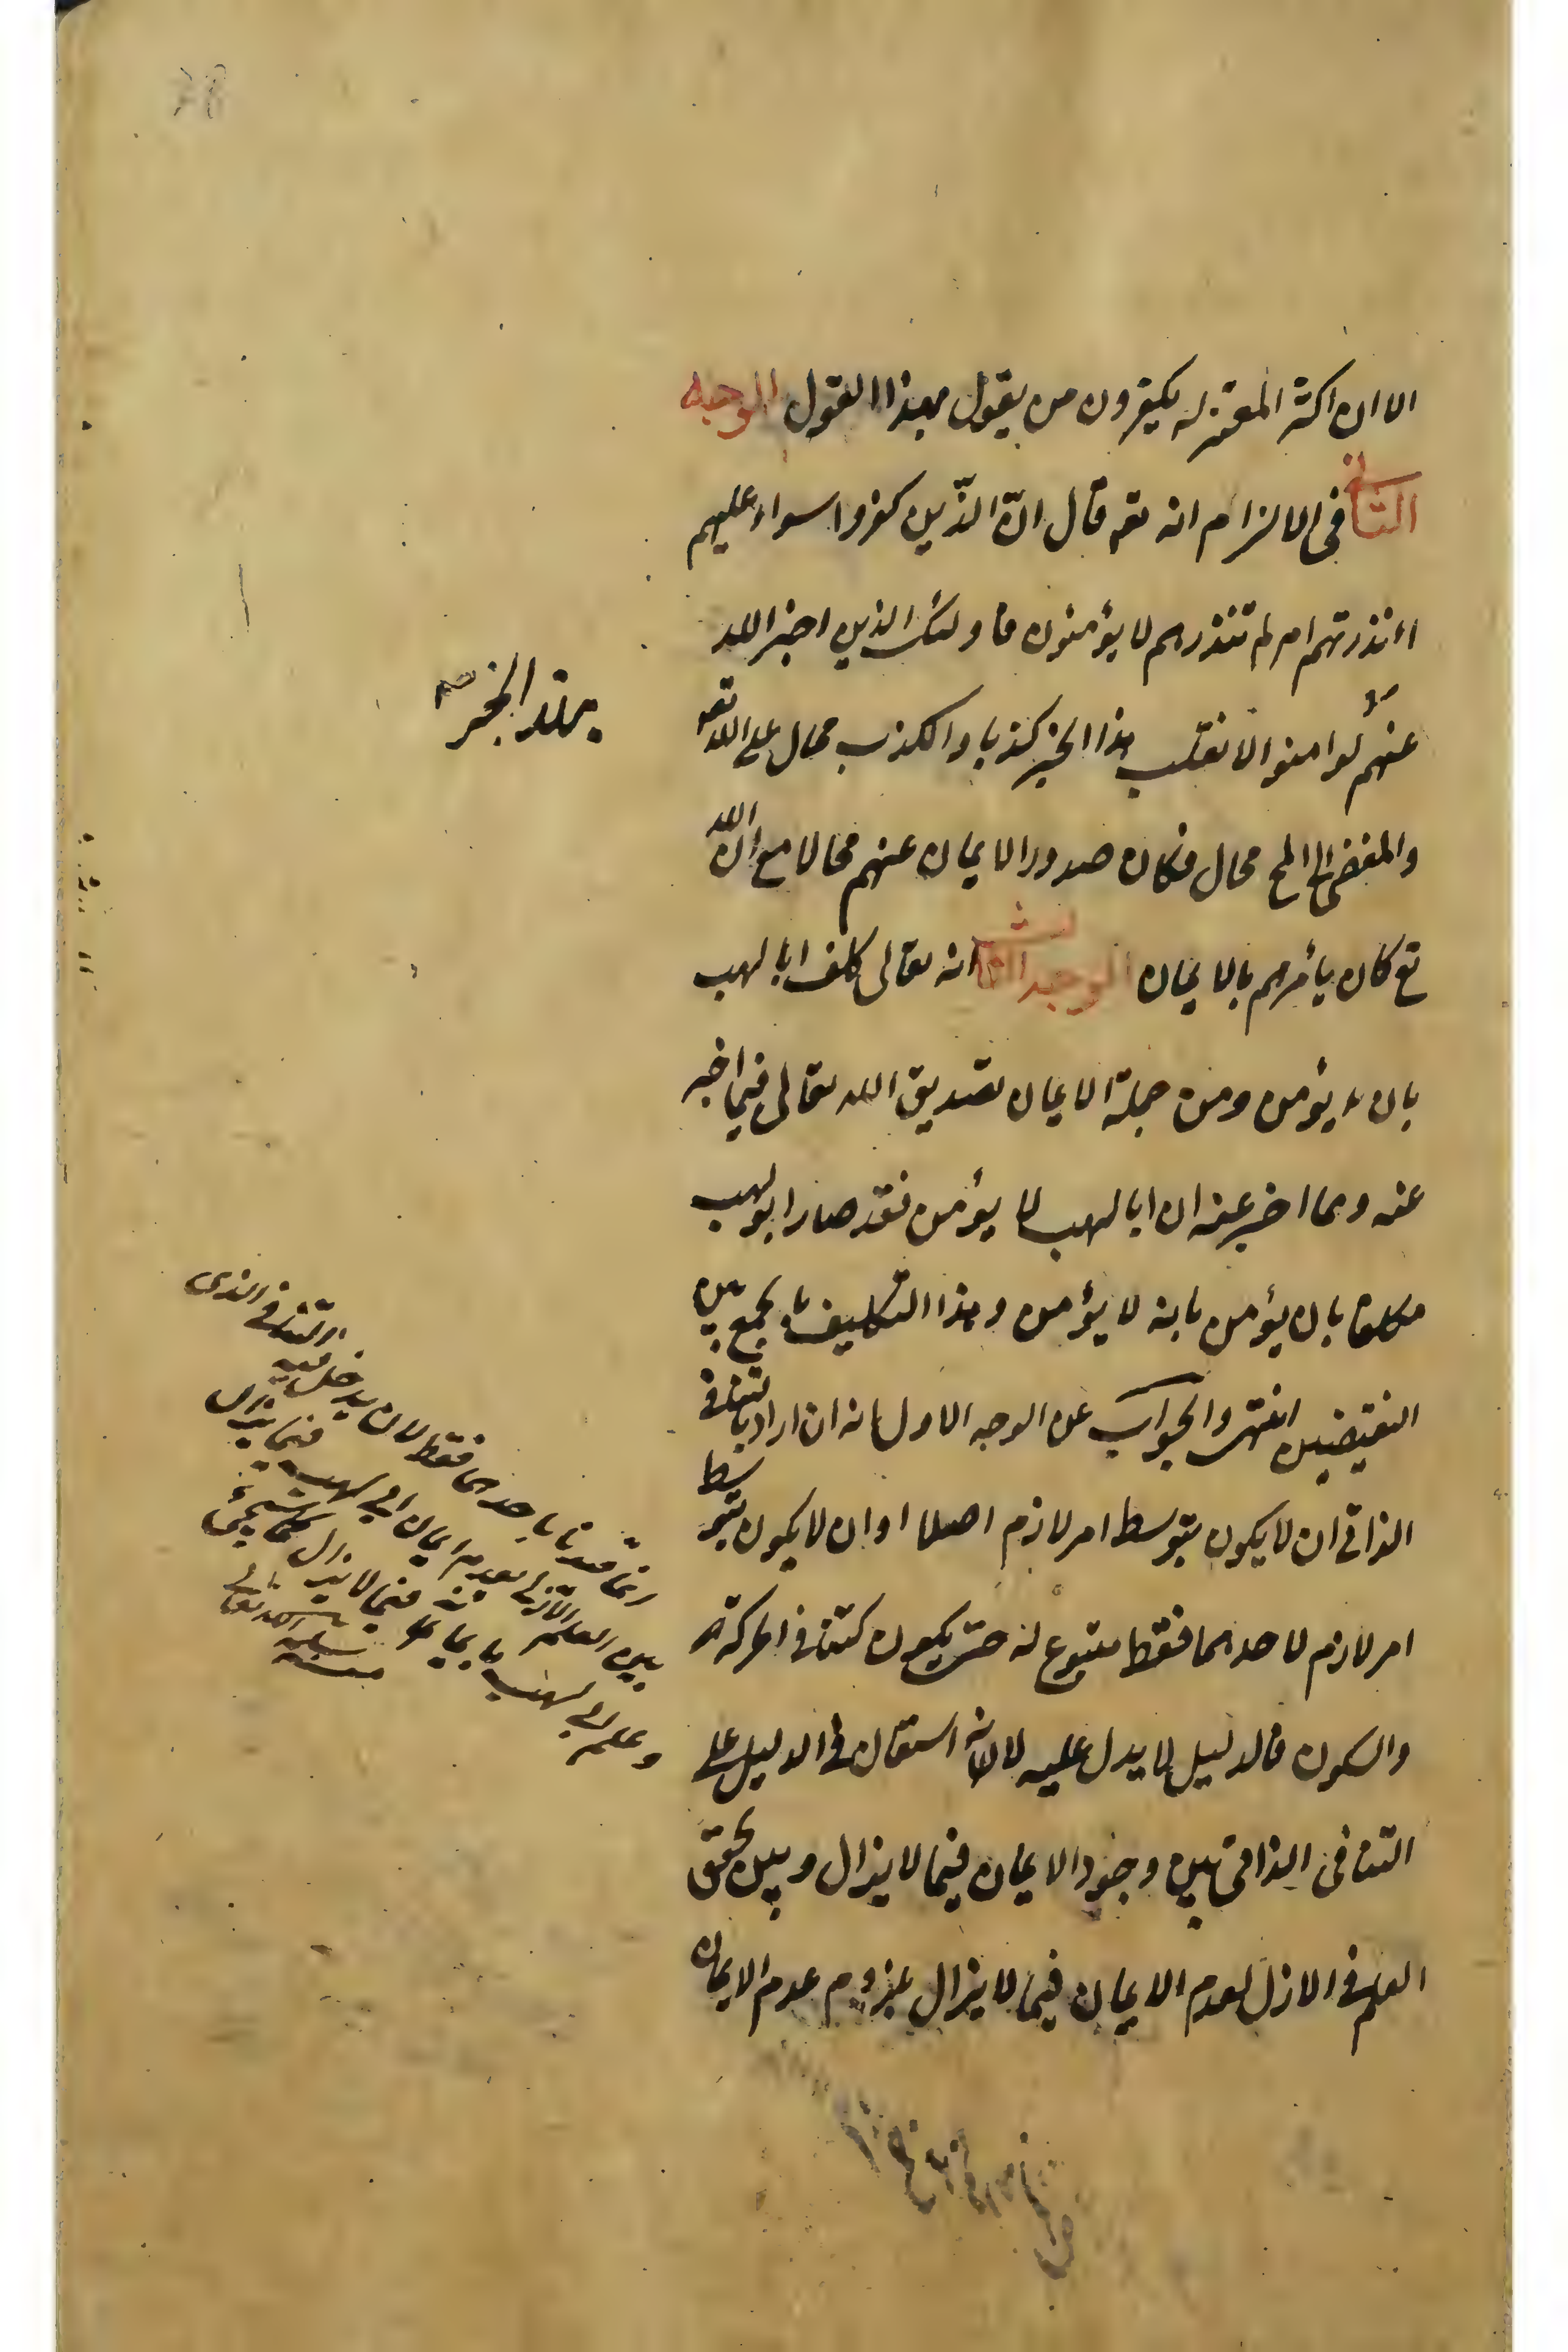 الا ان اكثر المعتزله يكفرون من يقول بهذا القول الوجه
الثانى فى الالزام انه تعه قال انّ الذّين كفروا سواء عليهم
اءنذرتهم ام لم تنذرهم لا يؤمنون فاولئك الذين اخبر الله
عنهم لو امنوا لانقلب هذا الخبر كذبا والكذب محال على الله تعه
والمفضى الى المح محال فكان صدور الايمان عنهم محالا مع ان الله
تع كان يأمرهم بالايمان الوجه الثالث انه تعالى كلف ابا لهب
بان يؤمن ومن جملة الايمان تصديق الله تعالى فيما اخبر
عنه ومما اخبر عنه ان ابا لهب لا يؤمن فقد صار ابو لهب
مكلفا بان يؤمن بانه لا يؤمن وهذا التكليف بالجمع بين
النقيضين انتهى والجواب عن الوجه الاول انه ان اراد بالتنافى
الذاتى ان لا يكون بتوسط امر لازم اصلا او ان لا يكون بتوسط
امر لازم لاحدهما فقط متبوع له حتى يكون كتنافى الحركة
والسكون فالدليل لا يدل عليه لانه استقال فى الدليل على
التنافى الذاتى بين وجود الايمان فيما لا يزال وبين تحقق
العلم فى الازل لعدم الايمان فيما لا يزال بلزوم عدم الايمان
بهذا الخبر
انما قيدنا باحدهما فقط لان يدخل فيه التنافى الذى
بين العلم الازلى بعدم ايمان ابى لهب فيما يزال
وعلم ابى لهب بايمانه فيما لا يزال كما سيجئ
منه سلمه الله تعالى